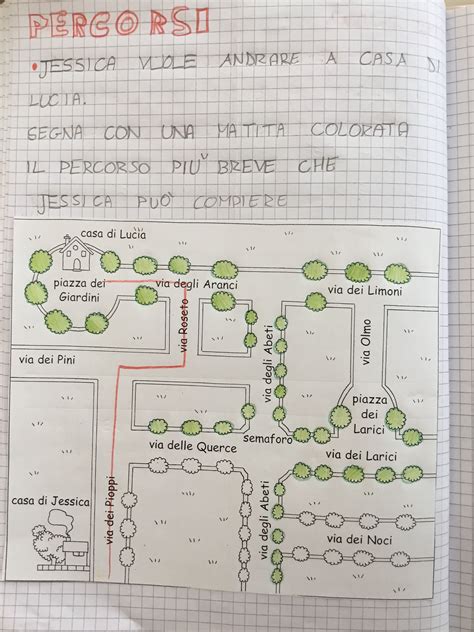 PERCORSI
• JESSICA VUOLE ANDRARE A CASA DI
LUCIA.
SEGNA CON UNA MATITA COLORATA
IL PERCORSO PIU' BREVE CHE
JESSICA PUO' COMPIERE
casa di Lucia
piazza dei
Giardini
via degli Aranci
via dei Limoni
via Roseto
via degli Abeti
via Olmo
via dei Pini
piazza
dei
Larici
semaforo
via delle Querce
via dei Larici
casa di Jessica
via dei Pioppi
via degli Abeti
via dei Noci